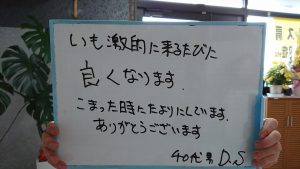 いも激的に来るたびに
良くなります.
こまった時にたよりにしています.
ありがとうございます
40代男 D.S